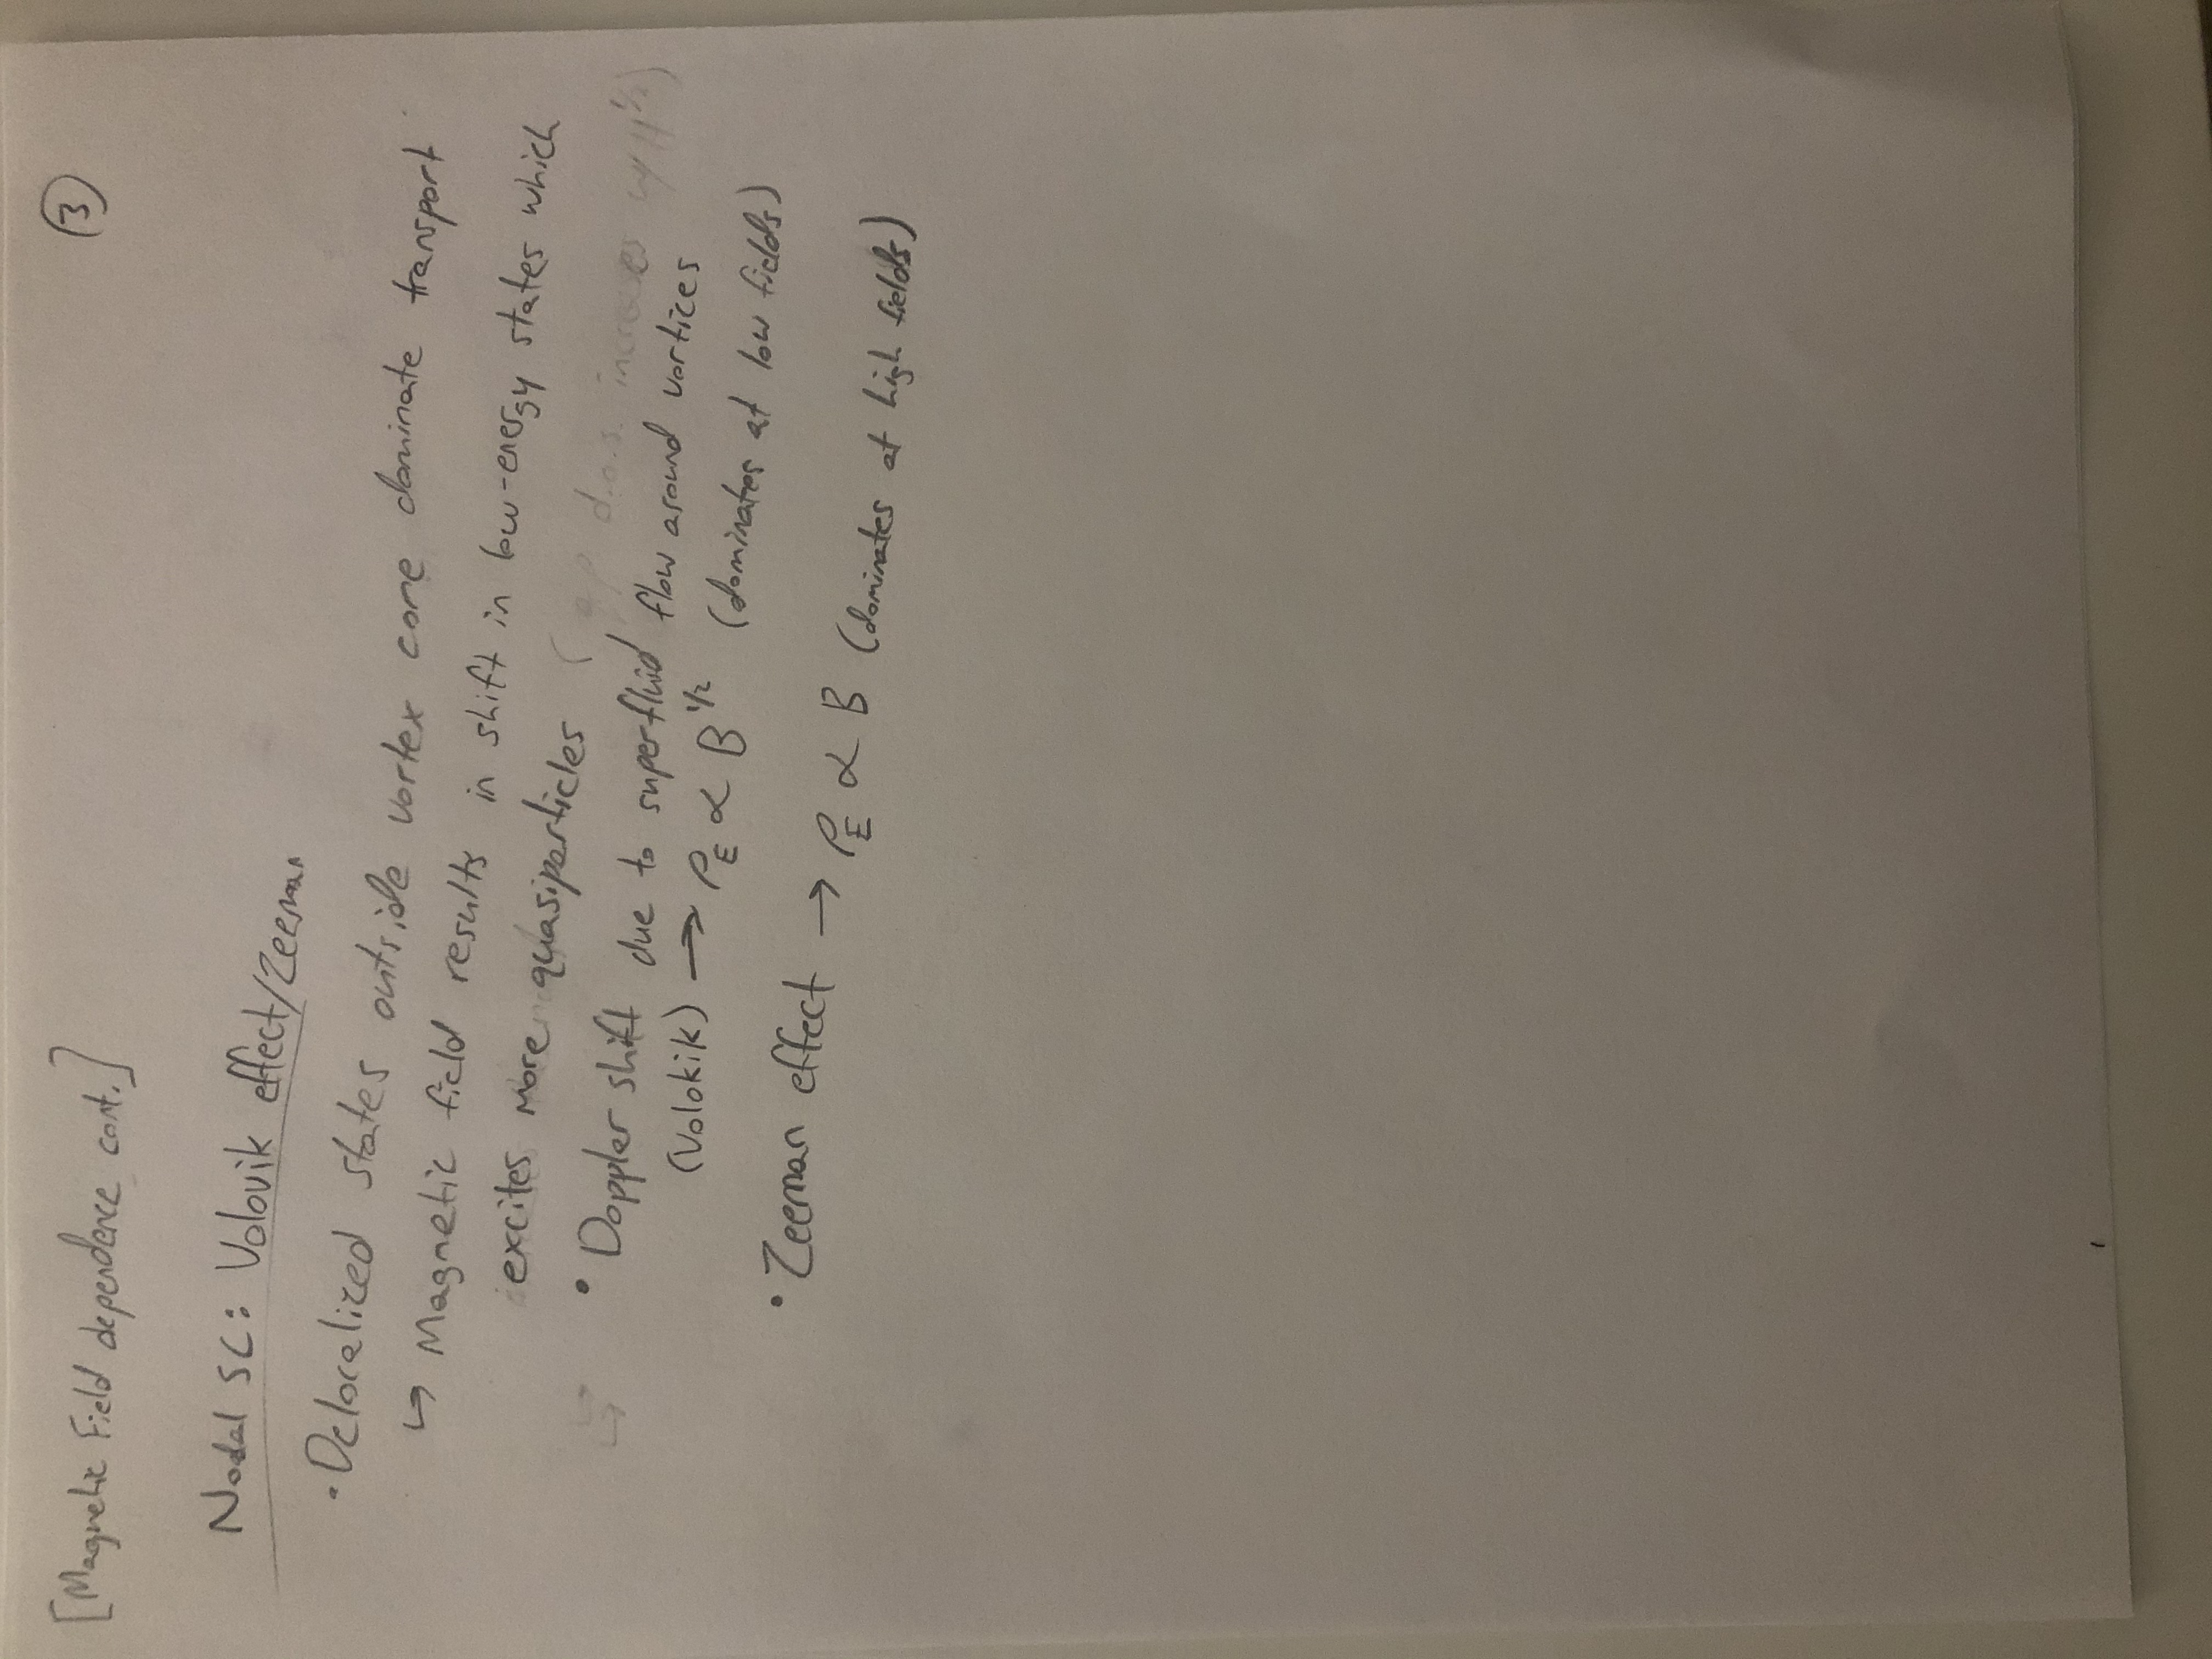 [Magnetic Field dependence cont.]
③
Nodal SC: Volovik effect/Zeeman
• Delocalized states outside vortex core dominate transport
↳ Magnetic field results in shift in low-energy states which
excites more quasiparticles (qp d.o.s. increases w/ H^1/2)
• Doppler shift due to superfluid flow around vortices
(Volokik) → ρ_E ∝ B^1/2 (dominates at low fields)
• Zeeman effect → ρ_E ∝ B (dominates at high fields)